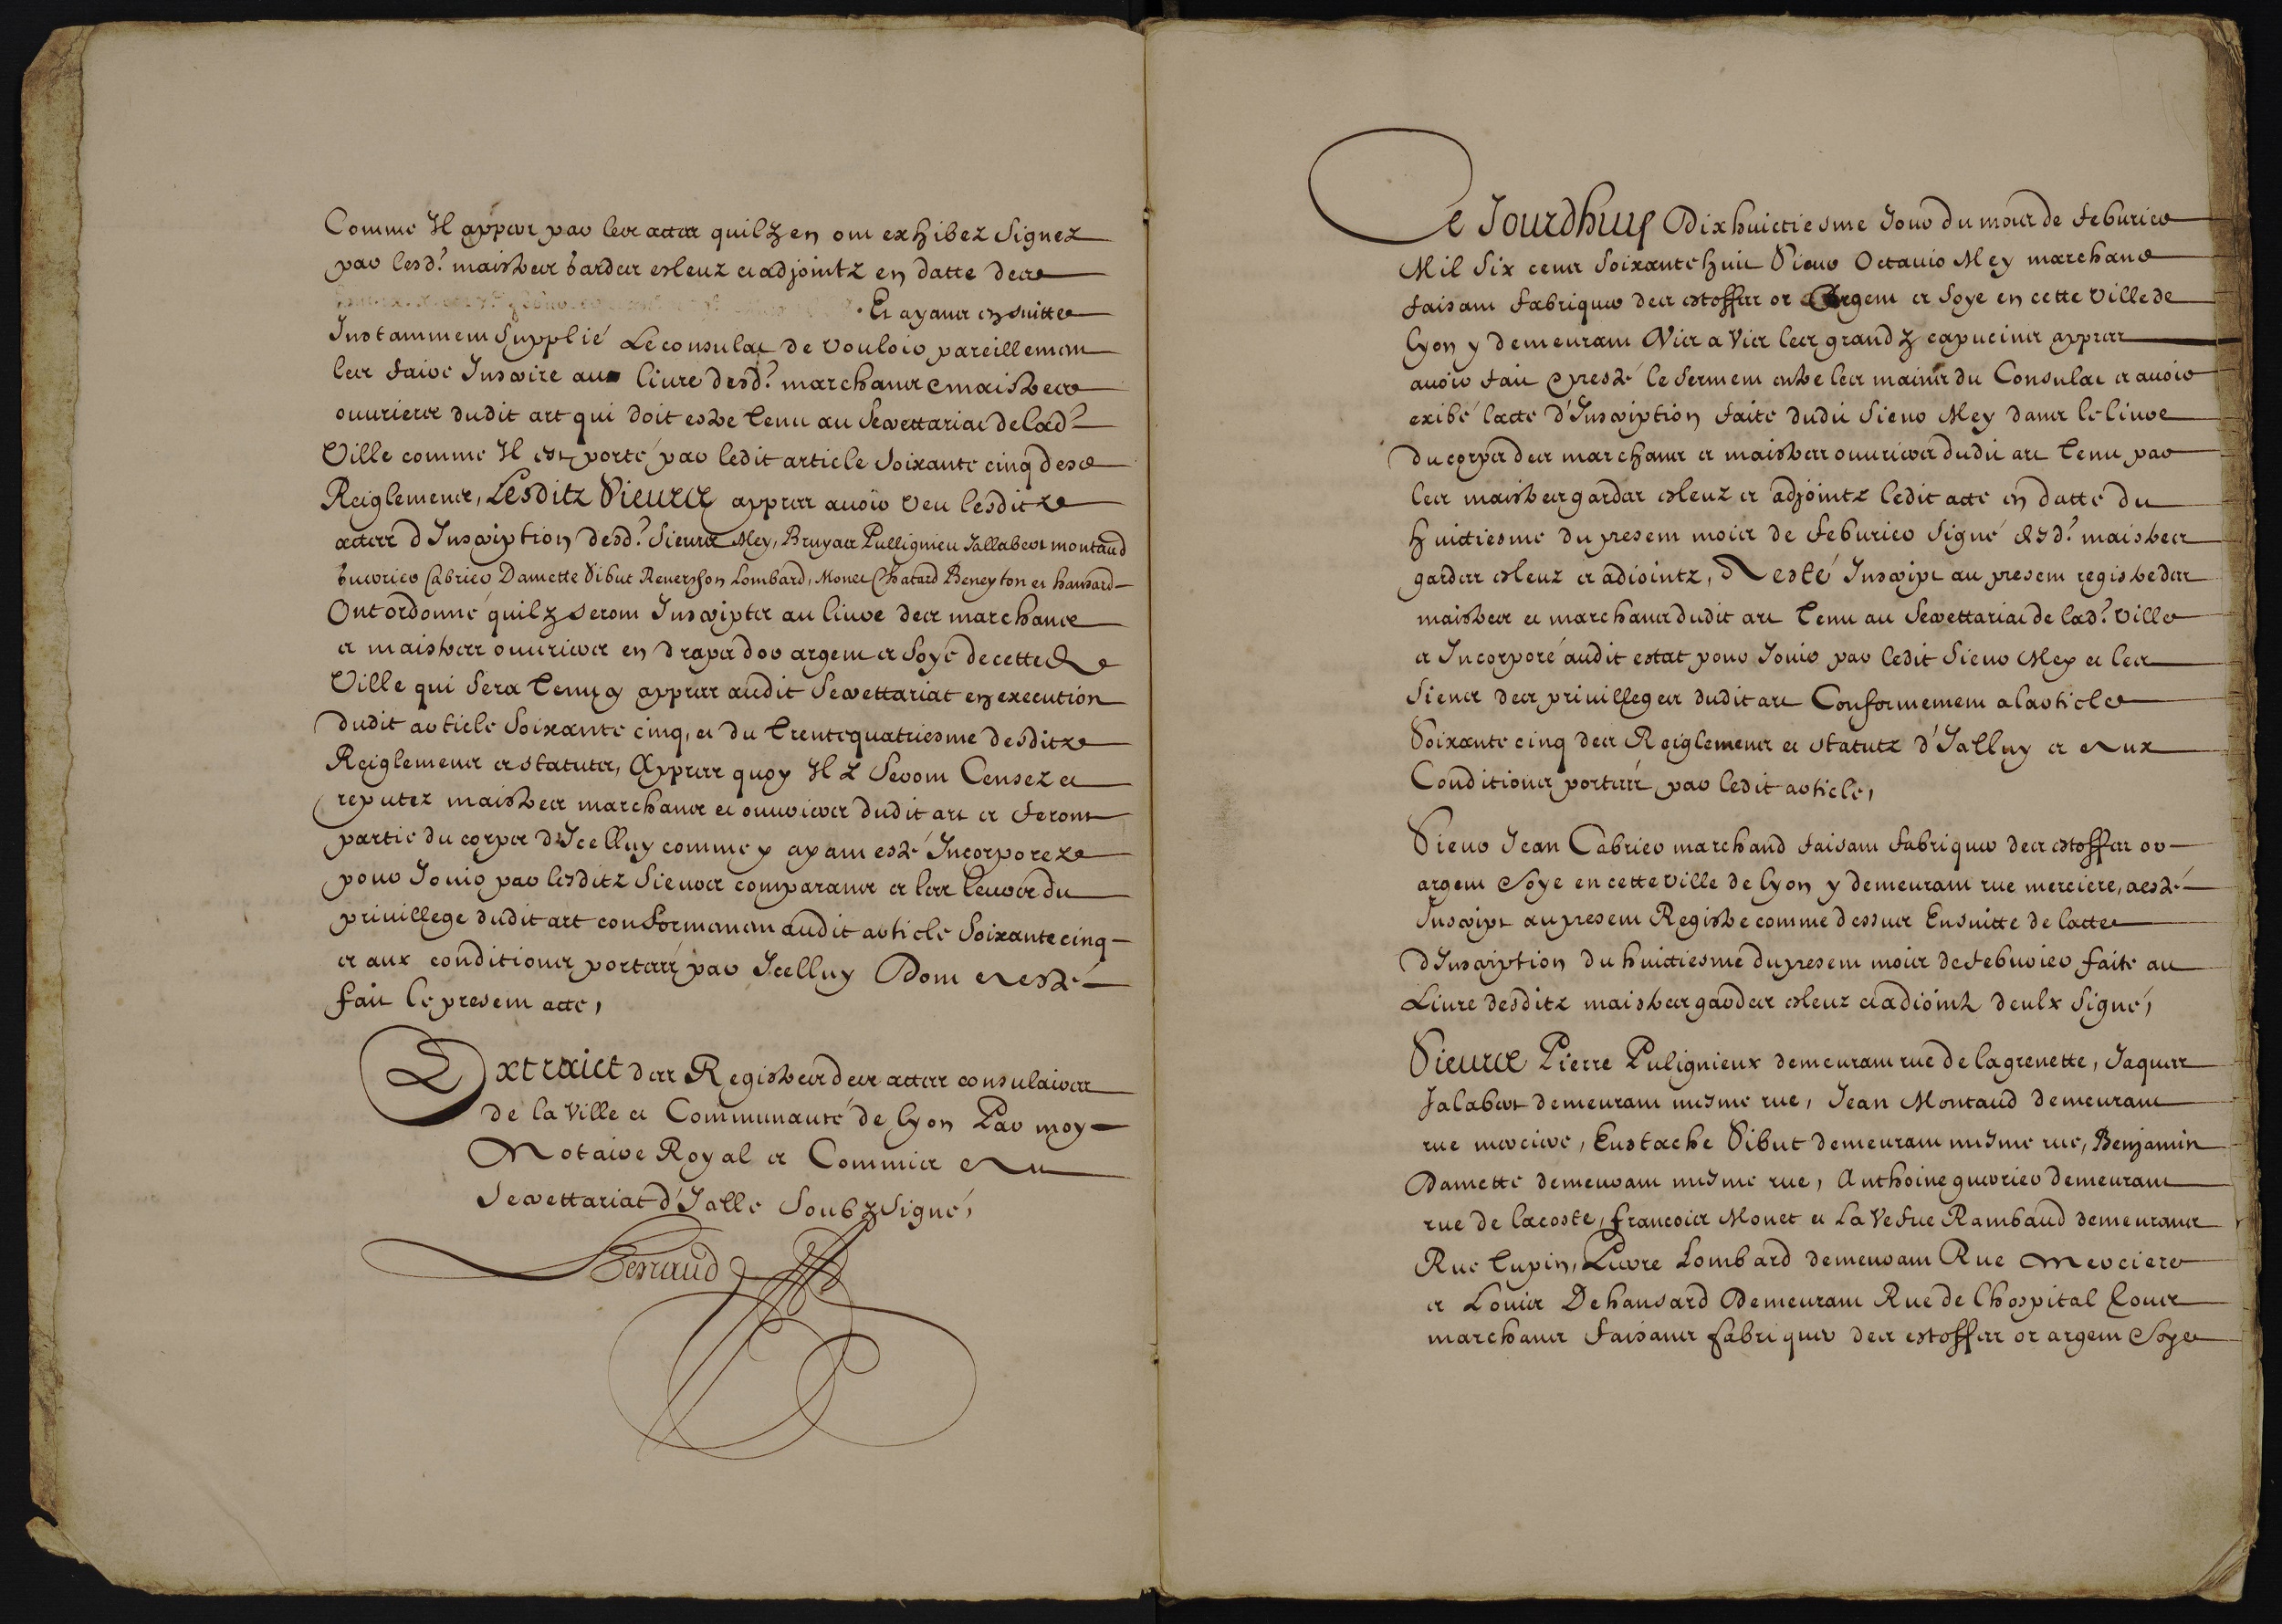 Comme Il appert par les actes quilz en ont exhibez signez
par lesd. maistres gardes esleuz et adjointz en datte des
Et ayant ensuitte
Instamment supplié Le consulat de vouloir pareillement
les faire Inscrire au livre desd. marchants & maistres
ouvriers dudit art qui doit estre tenu au Secrettariat de lad.
Ville comme Il est porté par ledit article soixante cinq desd
Reiglements, Lesditz Sieurs appres avoir veu lesditz
actes d'Inscription desd. Sieurs Mey, Bruyas Pullignieu Jallabert montaud
Guerrier Cabrier Damette Sibut Reverson Lombard, Monet Chatard Beneyton et hansard
Ont ordonné quilz seront Inscriptz au livre des marchants
et maistres ouvriers en draps dor argent et soye de cette
Ville qui sera tenu cy appres audit Secrettariat en execution
dudit article soixante cinq, et du trentequatriesme desditz
Reiglements et statuts, Appres quoy Ilz seront Censez et
reputez maistres marchants et ouvriers dudit art et feront
partie du corps d'Icelluy comme y ayant esté Incorporez
pour Jouir par lesditz Sieurs comparants et les leurs du
privillege dudit art conformement audit article soixante cinq
et aux conditions portees par Icelluy Dont a esté
fait le present acte,
Extraict des Registres des actes consulaires
de la Ville et Communauté de Lyon Par moy
Notaire Royal et Commis au
Secrettariat d'Jcelle Soubzsigné,
Renaud
Ce Jourdhuy Dixhuictiesme Jour du mois de feburier
Mil six cents soixante huit Sieur Octavio Mey marchand
faisant fabriquer des estoffes or Argent et soye en cette ville de
Lyon y demeurant Vis a Vis les grandz capucins appres
avoir fait & presté le serment entre les mains du Consulat et avoir
exibé lacte d'Inscription faite dudit Sieur Mey dans le livre
du corps des marchants et maistres ouvriers dudit art tenu par
les maistres gardes esleuz et adjointz ledit acte en datte du
huictiesme du present mois de feburier signé desd. maistres
gardes esleuz et adiointz, A esté Inscript au present registre des
maistres et marchants dudit art tenu au Secrettariat de lad. Ville
et Incorporé audit estat pour Jouir par ledit Sieur Mey et les
siens des privilleges dudit art Conformement a larticle
Soixante cinq des Reiglements et statutz d'Jcelluy et aux
Conditions portees par ledit article,
Sieur Jean Cabrier marchand faisant fabriquer des estoffes or
argent & soye en cette ville de Lyon y demeurant rue merciere, a esté
Inscript au present Registre comme dessus Ensuitte de lacte
d'Inscription du huictiesme du present mois de feburier faite au
Livre desditz maistres gardes esleuz et adiointz deulx signé,
Sieurs Pierre Pulignieux demeurant rue de lagrenette, Jaques
Jalabert demeurant mesme rue, Jean Montaud demeurant
rue merciere, Eustache Sibut demeurant mesme rue, Benjamin
Damette demeurant mesme rue, Anthoine guerrier demeurant
rue de lacoste, francois Monet et La Vefue Rambaud demeurants
Rue tupin, Pierre Lombard demeurant Rue Merciere
et Louis Dehansard Demeurant Rue de lhospital tous
marchants faisants fabriquer des estoffes or argent & soye